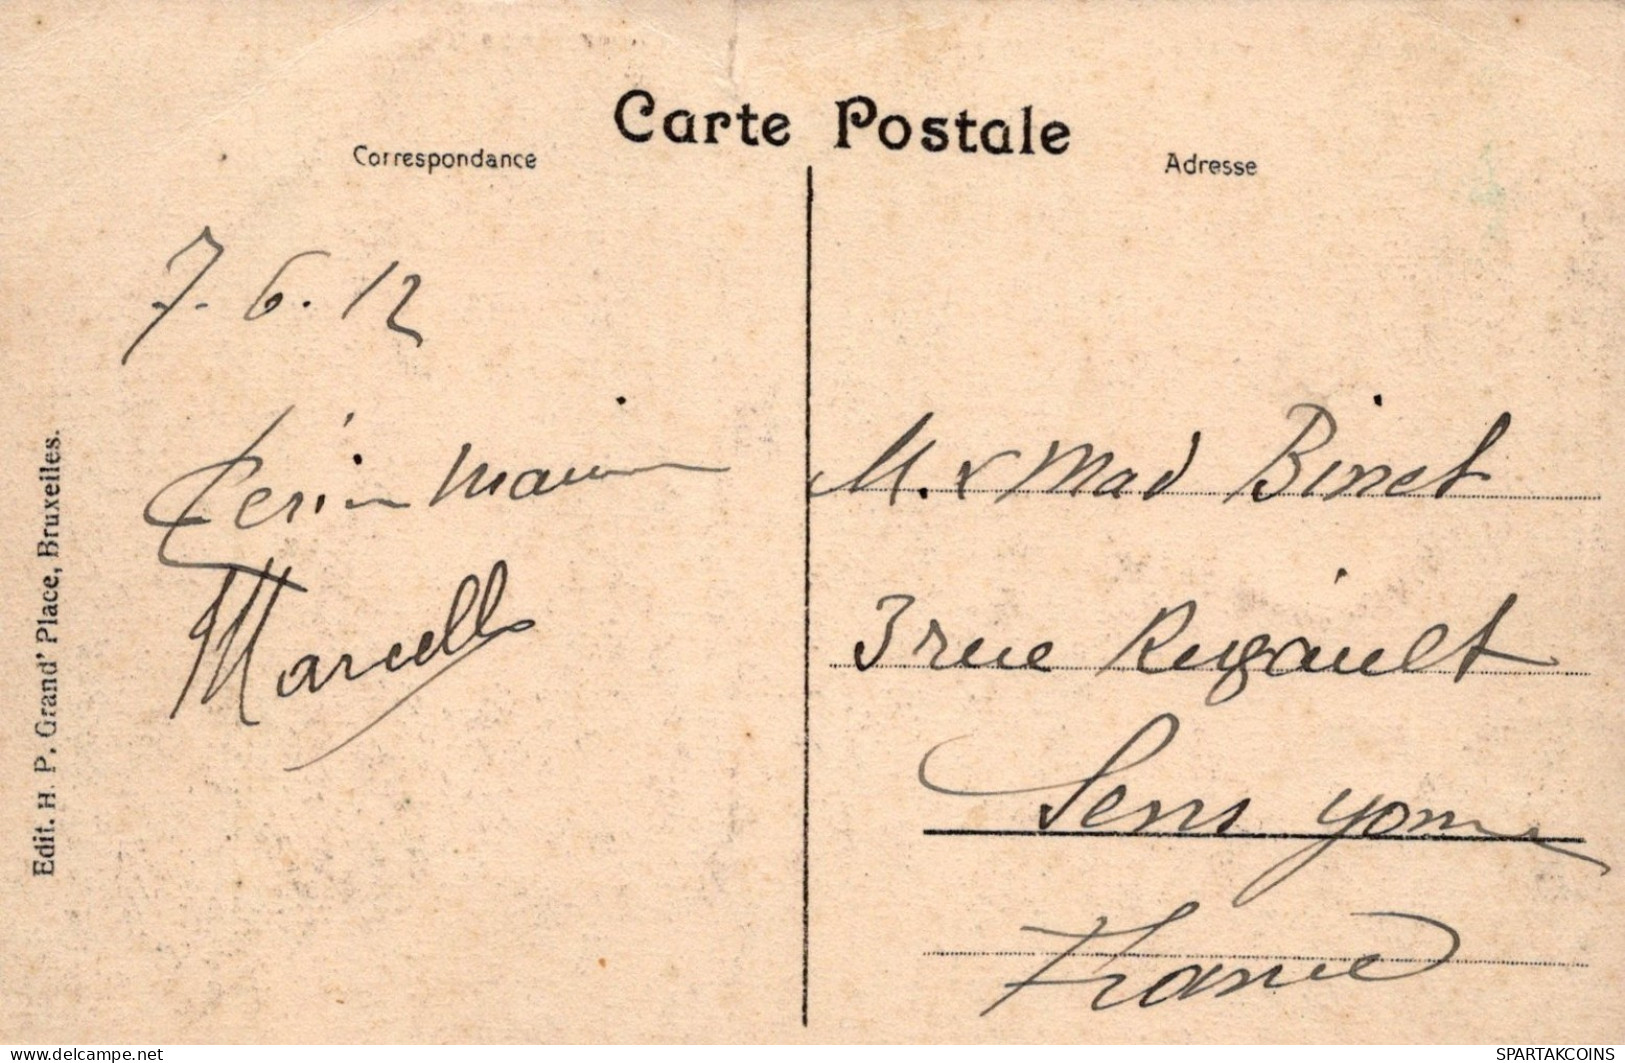 Carte Postale
Correspondance
Adresse
7. 6. 12
Marcelle
M. & Mad Binet
3 rue Rigault
Sens Yonne
France
Edit. H. P. Grand' Place, Bruxelles.
www.delcampe.net
SPARTAKCOINS